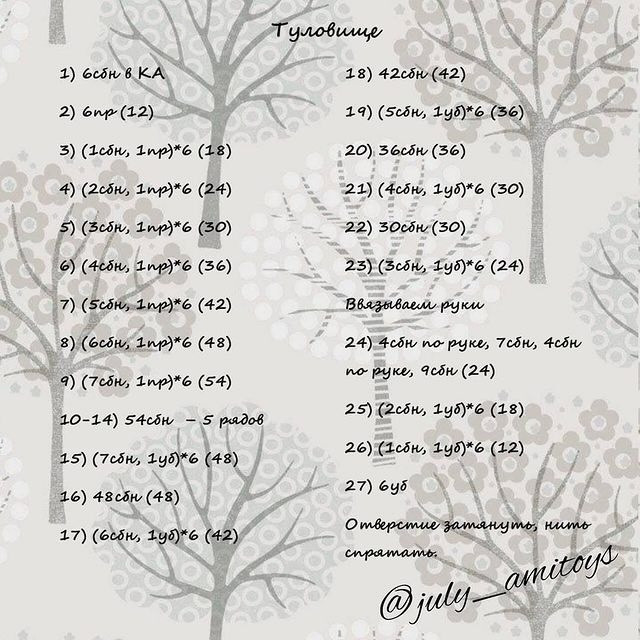 Туловище
1) 6сбн в КА
2) 6пр (12)
3) (1сбн, 1пр)*6 (18)
4) (2сбн, 1пр)*6 (24)
5) (3сбн, 1пр)*6 (30)
6) (4сбн, 1пр)*6 (36)
7) (5сбн, 1пр)*6 (42)
8) (6сбн, 1пр)*6 (48)
9) (7сбн, 1пр)*6 (54)
10-14) 54сбн – 5 рядов
15) (7сбн, 1уб)*6 (48)
16) 48сбн (48)
17) (6сбн, 1уб)*6 (42)
18) 42сбн (42)
19) (5сбн, 1уб)*6 (36)
20) 36сбн (36)
21) (4сбн, 1уб)*6 (30)
22) 30сбн (30)
23) (3сбн, 1уб)*6 (24)
Ввязываем руки
24) 4сбн по руке, 7сбн, 4сбн
по руке, 9сбн (24)
25) (2сбн, 1уб)*6 (18)
26) (1сбн, 1уб)*6 (12)
27) 6уб
Отверстие затянуть, нить
спрятать.
@july_amitoys